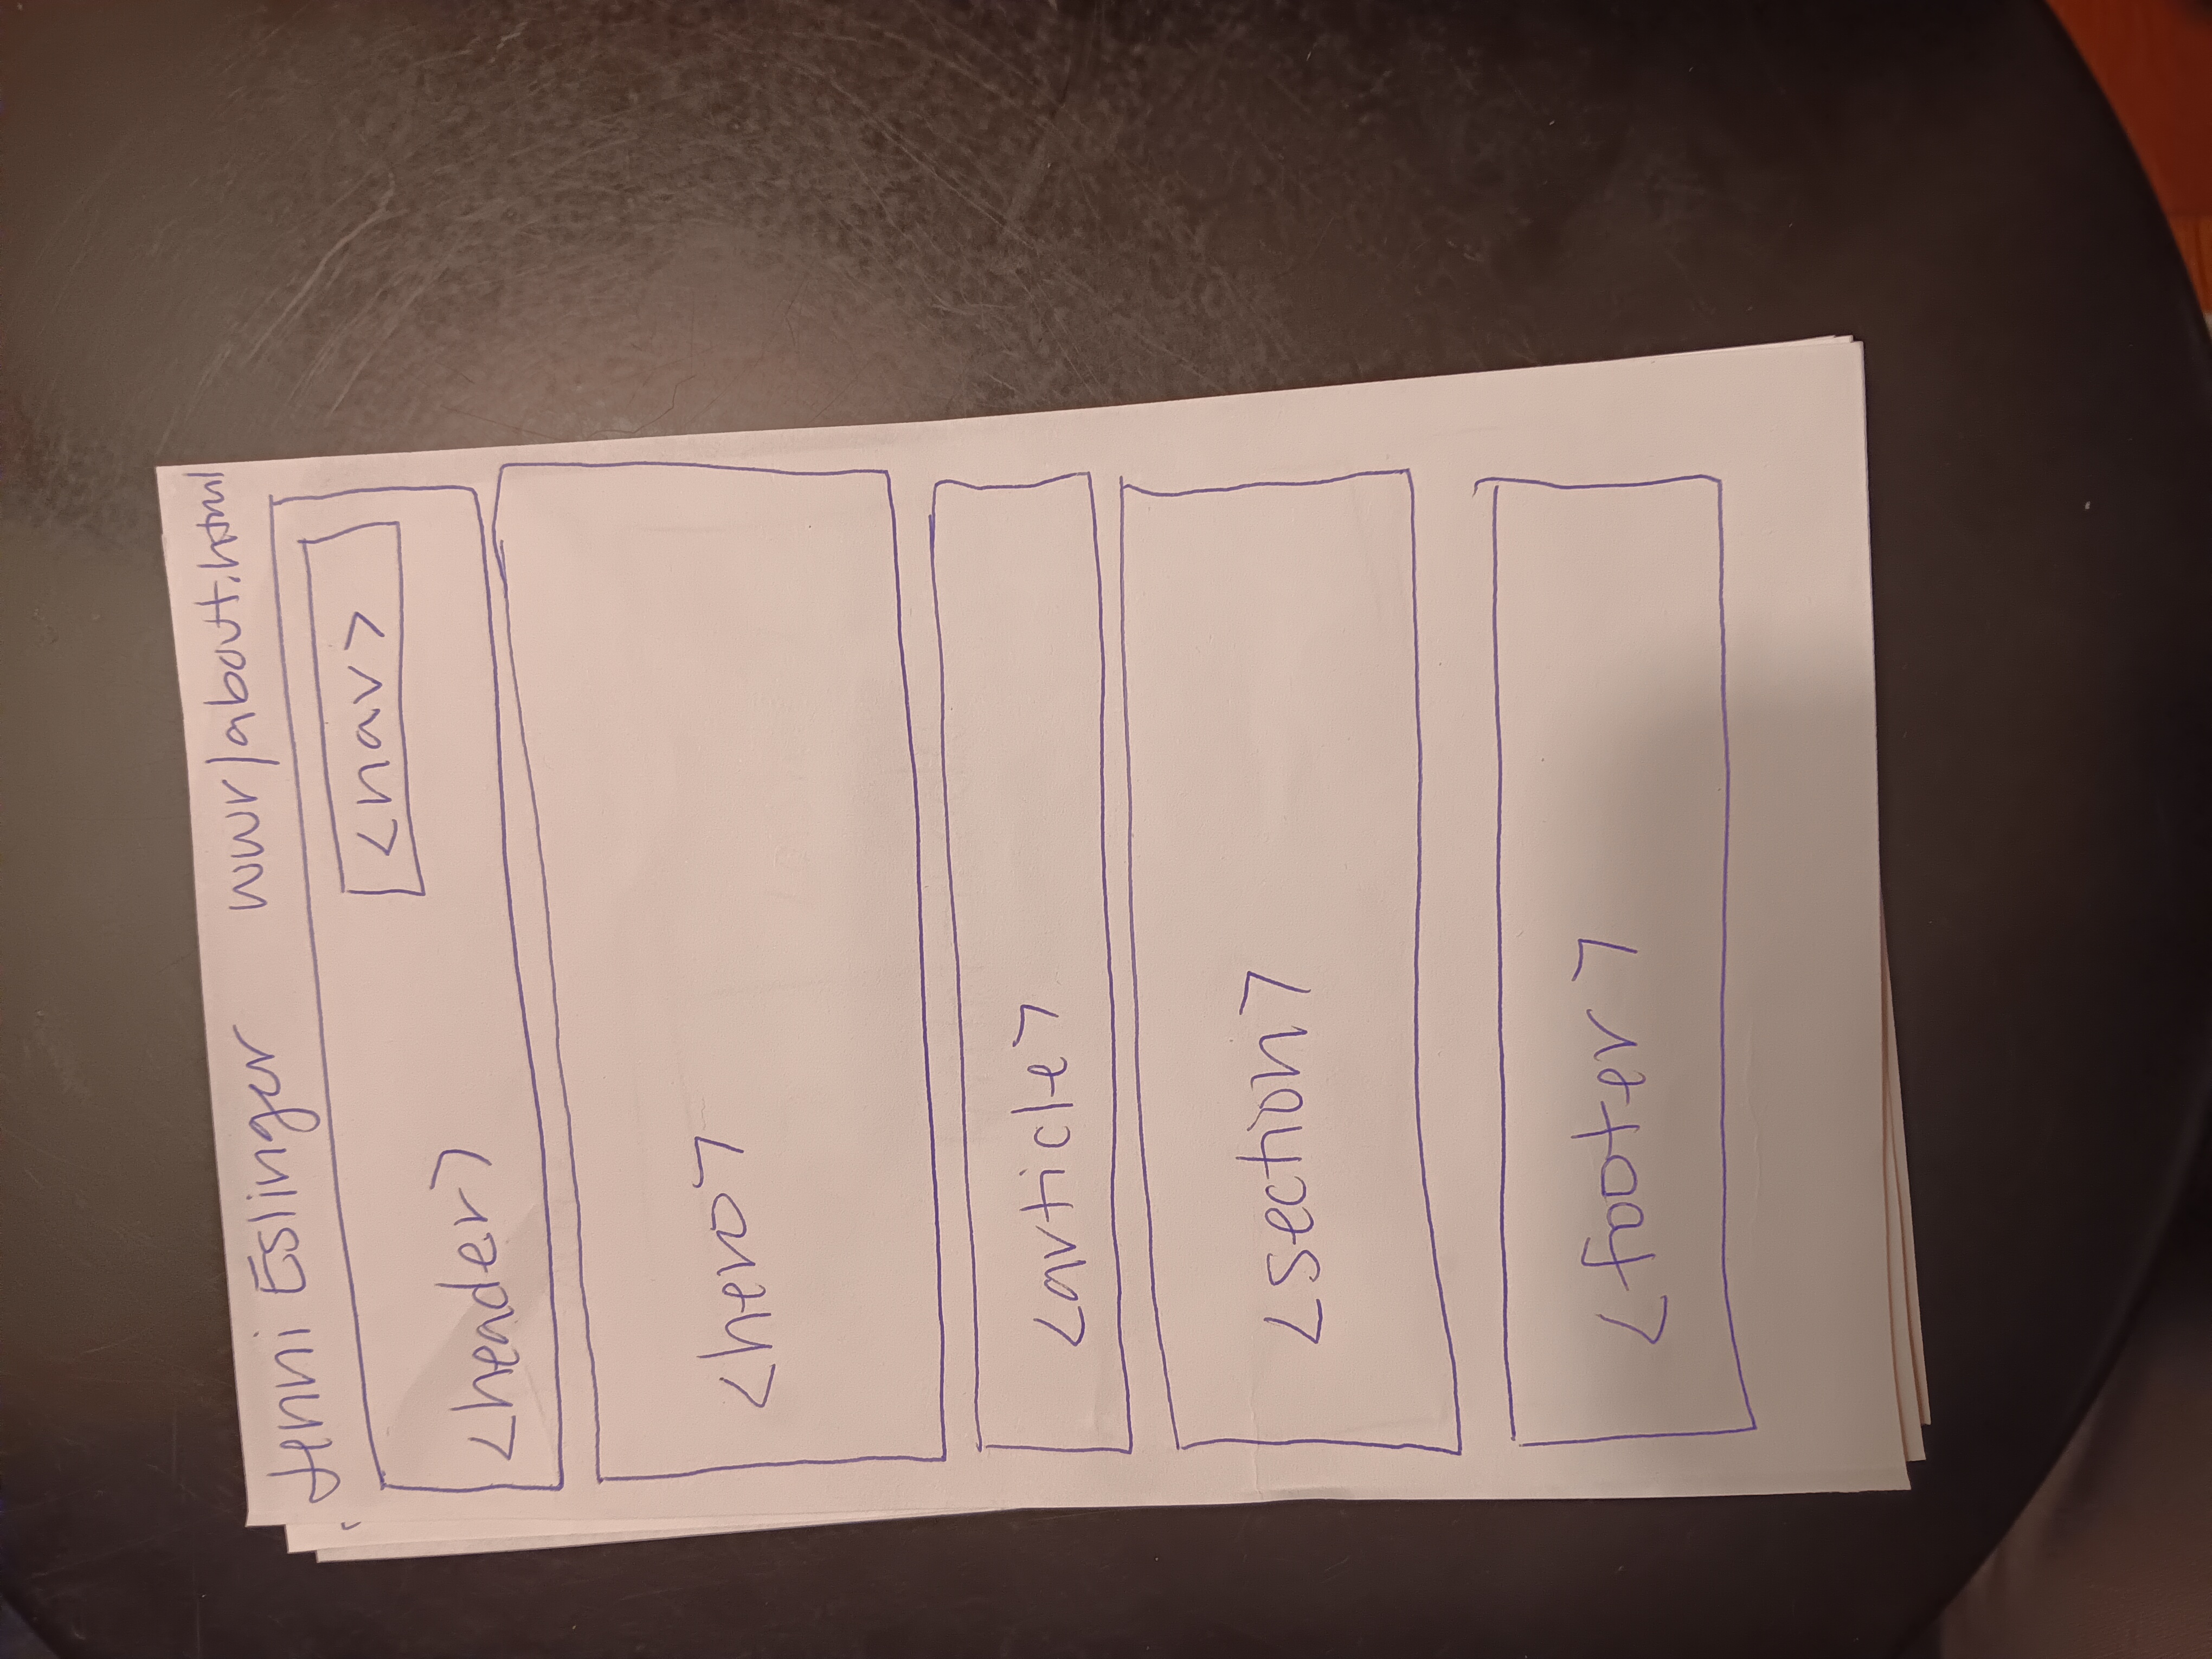 Jenni Eslinger wwr/about.html
<nav>
<header>
<hero>
<article>
<section>
<footer>